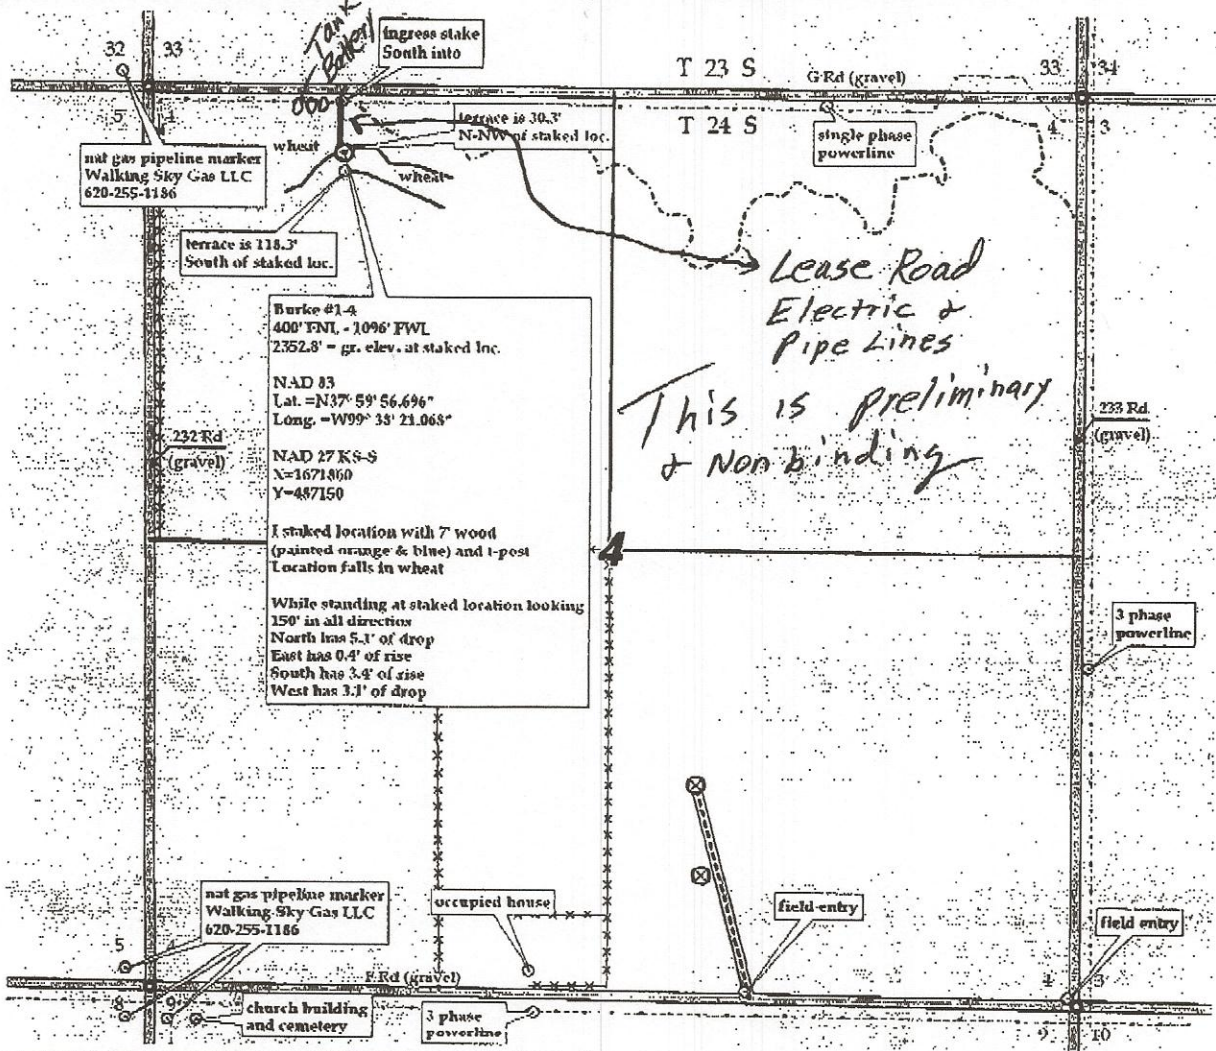 Tank
Battery
ingress stake
South into
32
33
T 23 S
G Rd (gravel)
33
34
5
4
T 24 S
4
3
single phase
powerline
terrace is 30.3'
N-NW of staked loc.
wheat
wheat
nat gas pipeline marker
Walking Sky Gas LLC
620-255-1186
terrace is 118.3'
South of staked loc.
Lease Road
Electric &
Pipe Lines
This is preliminary
& Non binding
Burke #1-4
400' FNL - 1096' FWL
2352.8' = gr. elev. at staked loc.
NAD 83
Lat. =N37° 59' 56.696"
Long. =W99° 38' 21.068"
NAD 27 KS-S
X=1671860
Y=487150
I staked location with 7' wood
(painted orange & blue) and t-post
Location falls in wheat
While standing at staked location looking
150' in all direction
North has 5.1' of drop
East has 0.4' of rise
South has 3.4' of rise
West has 3.1' of drop
232 Rd
(gravel)
233 Rd
(gravel)
4
3 phase
powerline
nat gas pipeline marker
Walking Sky Gas LLC
620-255-1186
occupied house
field entry
field entry
5
4
F Rd (gravel)
4
3
8
9
church building
and cemetery
3 phase
powerline
9
10